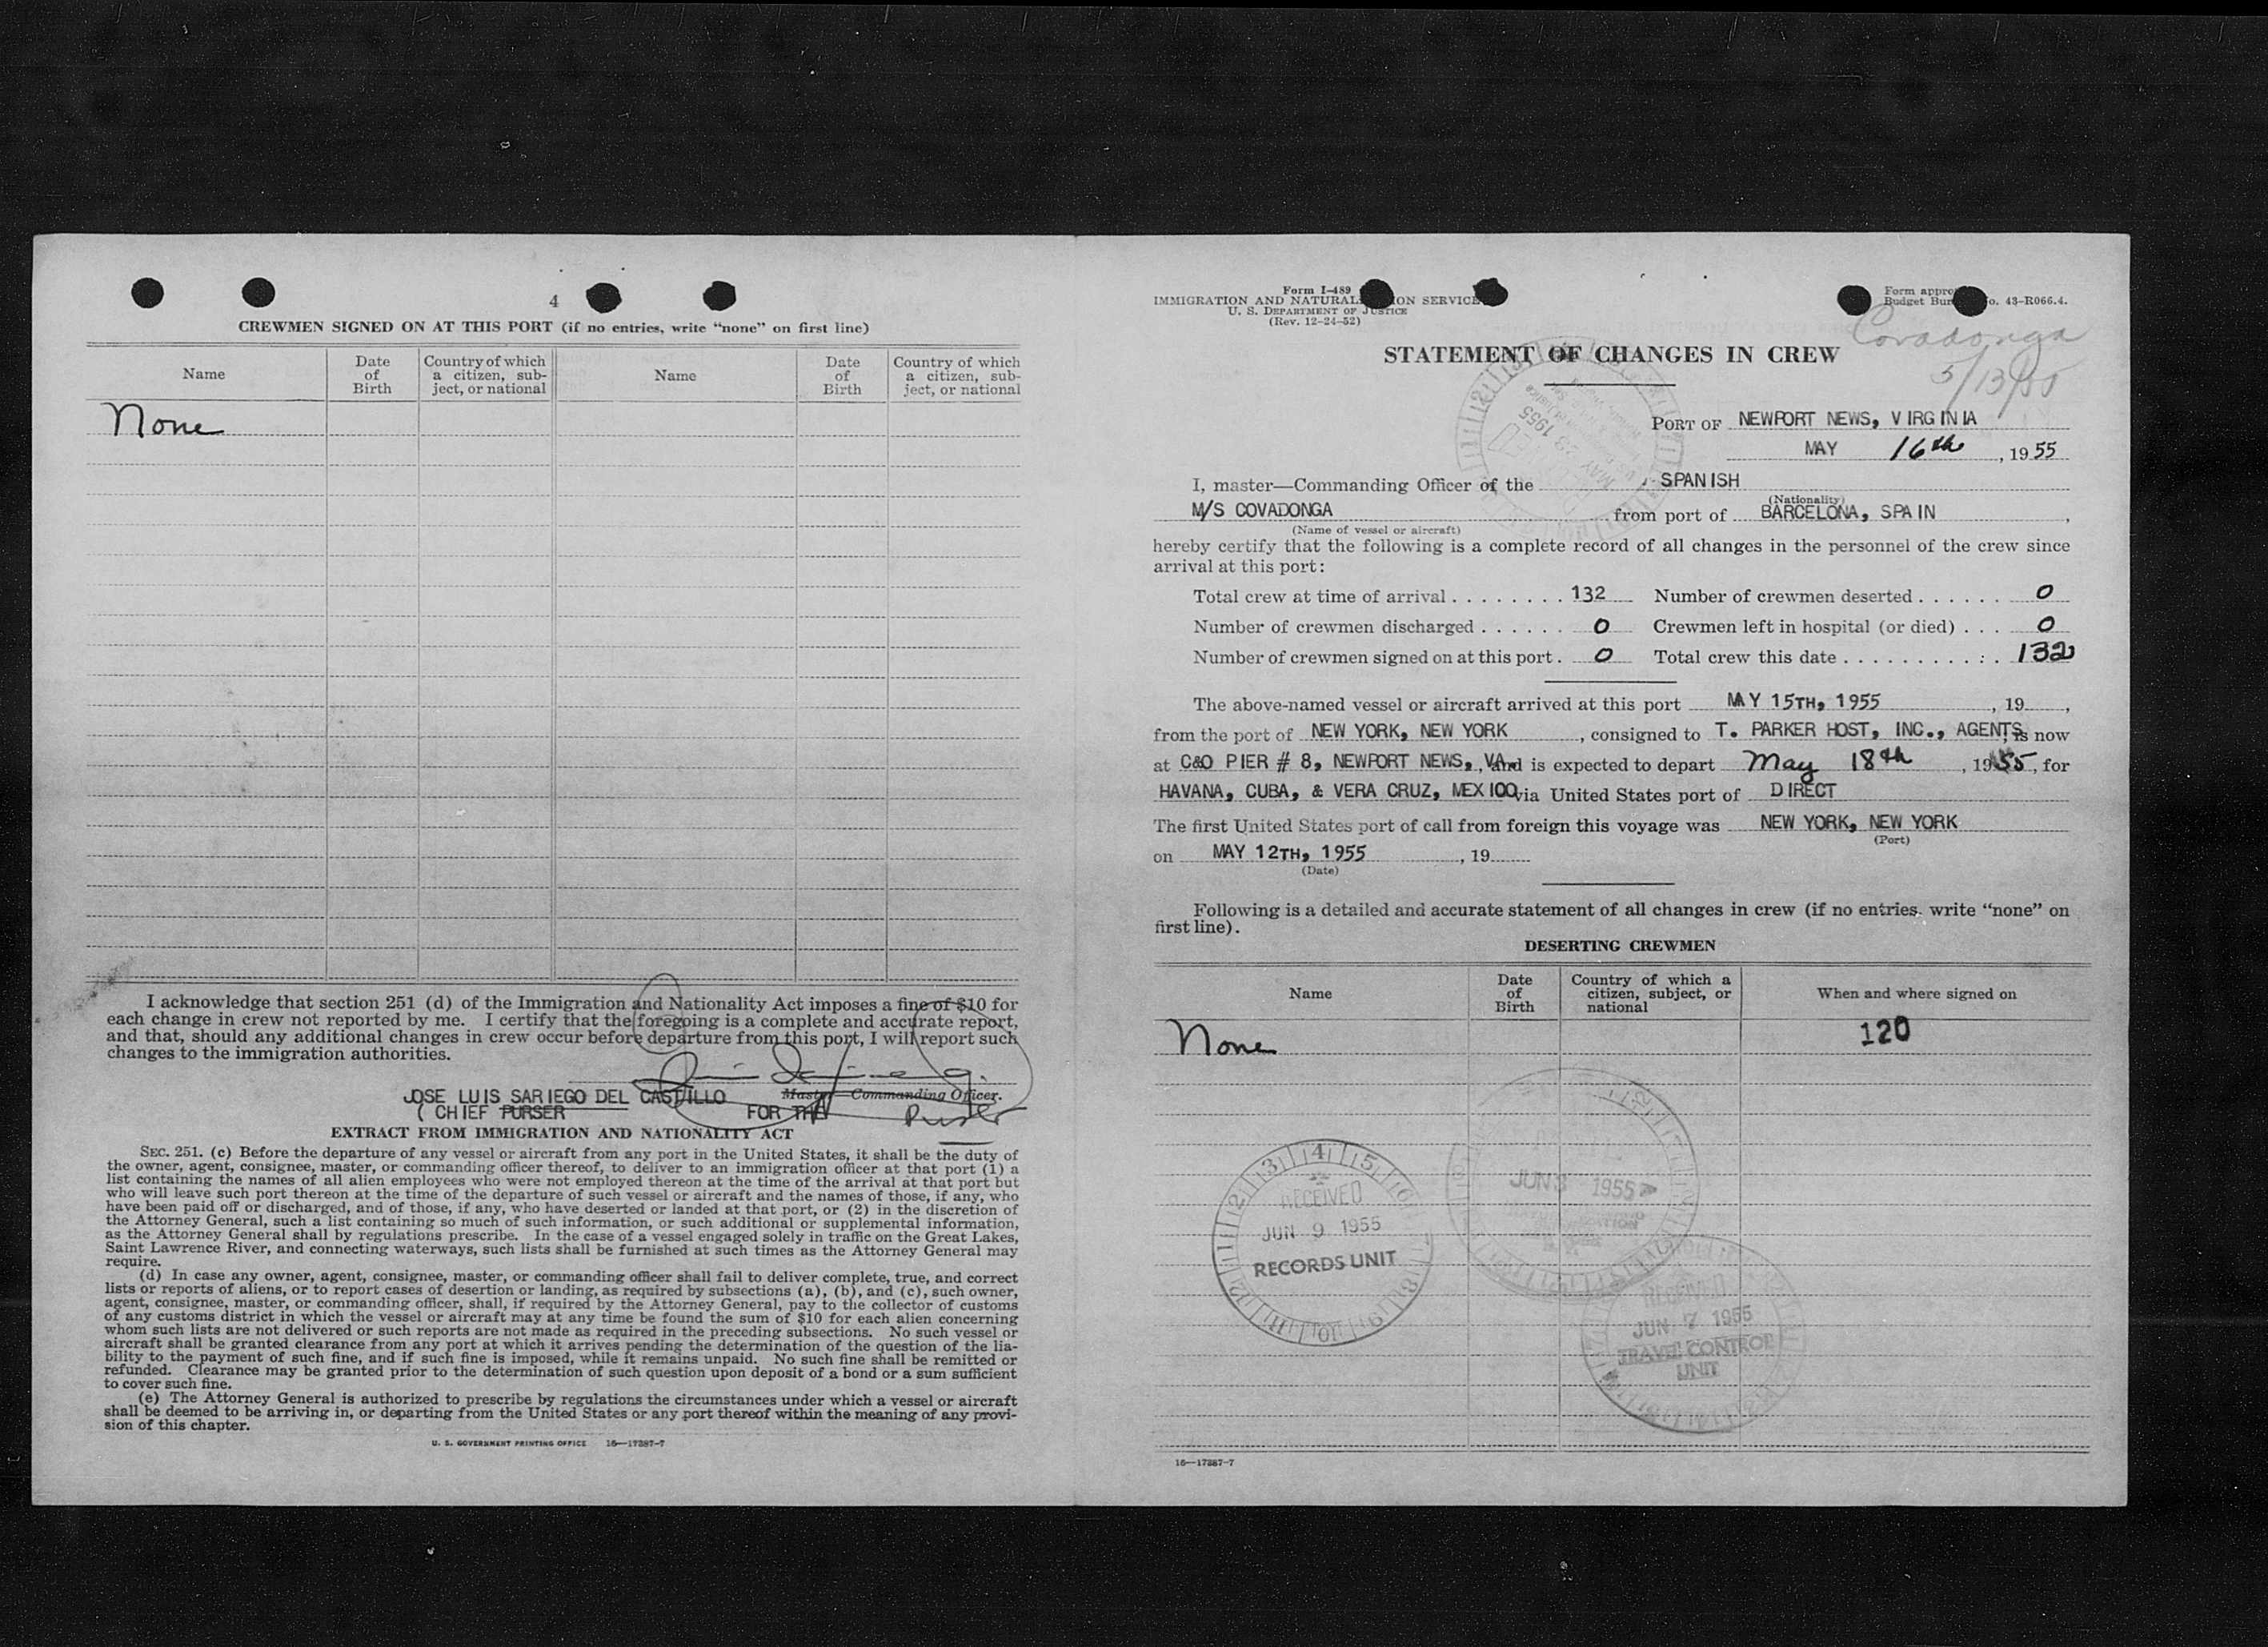 4
CREWMEN SIGNED ON AT THIS PORT (if no entries, write “none” on first line)
Name
Date of Birth
Country of which a citizen, sub-ject, or national
Name
Date of Birth
Country of which a citizen, sub-ject, or national
None
I acknowledge that section 251 (d) of the Immigration and Nationality Act imposes a fine of $10 for
each change in crew not reported by me. I certify that the foregoing is a complete and accurate report,
and that, should any additional changes in crew occur before departure from this port, I will report such
changes to the immigration authorities.
JOSE LUIS SARIEGO DEL CASTILLO Master—Commanding Officer.
( CHIEF PURSER FOR THE Purser
EXTRACT FROM IMMIGRATION AND NATIONALITY ACT
SEC. 251. (c) Before the departure of any vessel or aircraft from any port in the United States, it shall be the duty of
the owner, agent, consignee, master, or commanding officer thereof, to deliver to an immigration officer at that port (1) a
list containing the names of all alien employees who were not employed thereon at the time of the arrival at that port but
who will leave such port thereon at the time of the departure of such vessel or aircraft and the names of those, if any, who
have been paid off or discharged, and of those, if any, who have deserted or landed at that port, or (2) in the discretion of
the Attorney General, such a list containing so much of such information, or such additional or supplemental information,
as the Attorney General shall by regulations prescribe. In the case of a vessel engaged solely in traffic on the Great Lakes,
Saint Lawrence River, and connecting waterways, such lists shall be furnished at such times as the Attorney General may
require.
(d) In case any owner, agent, consignee, master, or commanding officer shall fail to deliver complete, true, and correct
lists or reports of aliens, or to report cases of desertion or landing, as required by subsections (a), (b), and (c), such owner,
agent, consignee, master, or commanding officer, shall, if required by the Attorney General, pay to the collector of customs
of any customs district in which the vessel or aircraft may at any time be found the sum of $10 for each alien concerning
whom such lists are not delivered or such reports are not made as required in the preceding subsections. No such vessel or
aircraft shall be granted clearance from any port at which it arrives pending the determination of the question of the lia-
bility to the payment of such fine, and if such fine is imposed, while it remains unpaid. No such fine shall be remitted or
refunded. Clearance may be granted prior to the determination of such question upon deposit of a bond or a sum sufficient
to cover such fine.
(e) The Attorney General is authorized to prescribe by regulations the circumstances under which a vessel or aircraft
shall be deemed to be arriving in, or departing from the United States or any port thereof within the meaning of any provi-
sion of this chapter.
U. S. GOVERNMENT PRINTING OFFICE 16—17387-7
Form I-489
IMMIGRATION AND NATURAL ON SERVICE
U. S. DEPARTMENT OF JUSTICE
(Rev. 12-24-52)
Form appro
Budget Bur o. 43-R066.4.
Covadonga
5/13/55
STATEMENT OF CHANGES IN CREW
MAY 23 1955
PORT OF NEWPORT NEWS, VIRGINIA
MAY 16th, 1955
I, master—Commanding Officer of the SPANISH
(Nationality)
M/S COVADONGA from port of BARCELONA, SPAIN,
(Name of vessel or aircraft)
hereby certify that the following is a complete record of all changes in the personnel of the crew since
arrival at this port:
Total crew at time of arrival . . . . . . . . 132 Number of crewmen deserted . . . . . . 0
Number of crewmen discharged . . . . . . 0 Crewmen left in hospital (or died) . . . 0
Number of crewmen signed on at this port . 0 Total crew this date . . . . . . . . . . : . 132
The above-named vessel or aircraft arrived at this port MAY 15TH, 1955, 19 ,
from the port of NEW YORK, NEW YORK, consigned to T. PARKER HOST, INC., AGENTS, is now
at C&O PIER # 8, NEWPORT NEWS, VA., and is expected to depart May 18th, 1955, for
HAVANA, CUBA, & VERA CRUZ, MEXICO via United States port of DIRECT
The first United States port of call from foreign this voyage was NEW YORK, NEW YORK
(Port)
on MAY 12TH, 1955, 19
(Date)
Following is a detailed and accurate statement of all changes in crew (if no entries, write “none” on
first line).
DESERTING CREWMEN
Name
Date of Birth
Country of which a citizen, subject, or national
When and where signed on
None
120
RECEIVED
JUN 9 1955
RECORDS UNIT
JUN 3 1955
RECEIVED
JUN 7 1955
TRAVEL CONTROL
UNIT
16—17387-7